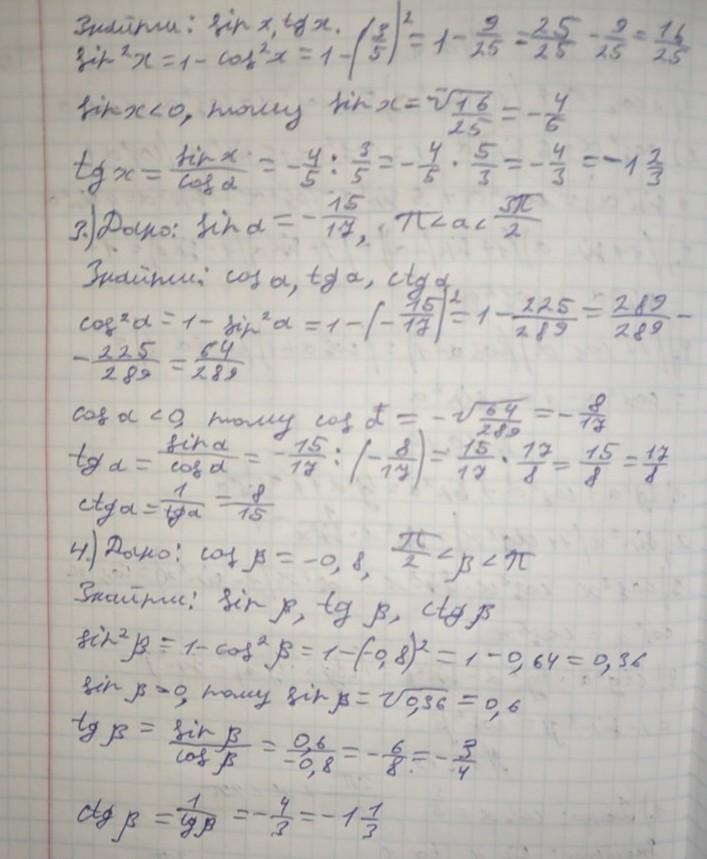 Знайти: sin x, tg x.
sin²x = 1 - cos²x = 1 - (3/5)² = 1 - 9/25 = 25/25 - 9/25 = 16/25
sin x < 0, тому sin x = -√16/25 = -4/5
tg x = sin x/cos α = -4/5 : 3/5 = -4/5 · 5/3 = -4/3 = -1 2/3
3.) Дано: sin α = -15/17, π < α < 3π/2
Знайти: cos α, tg α, ctg α
cos²α = 1 - sin²α = 1 - (-15/17)² = 1 - 225/289 = 289/289 -
- 225/289 = 64/289
cos α < 0, тому cos α = -√64/289 = -8/17
tg α = sin α/cos α = -15/17 : (-8/17) = 15/17 · 17/8 = 15/8 = 17/8
ctg α = 1/tg α = 8/15
4.) Дано: cos β = -0,8, π/2 < β < π
Знайти: sin β, tg β, ctg β
sin²β = 1 - cos²β = 1 - (-0,8)² = 1 - 0,64 = 0,36
sin β > 0, тому sin β = √0,36 = 0,6
tg β = sin β/cos β = 0,6/-0,8 = -6/8 = -3/4
ctg β = 1/tg β = -4/3 = -1 1/3